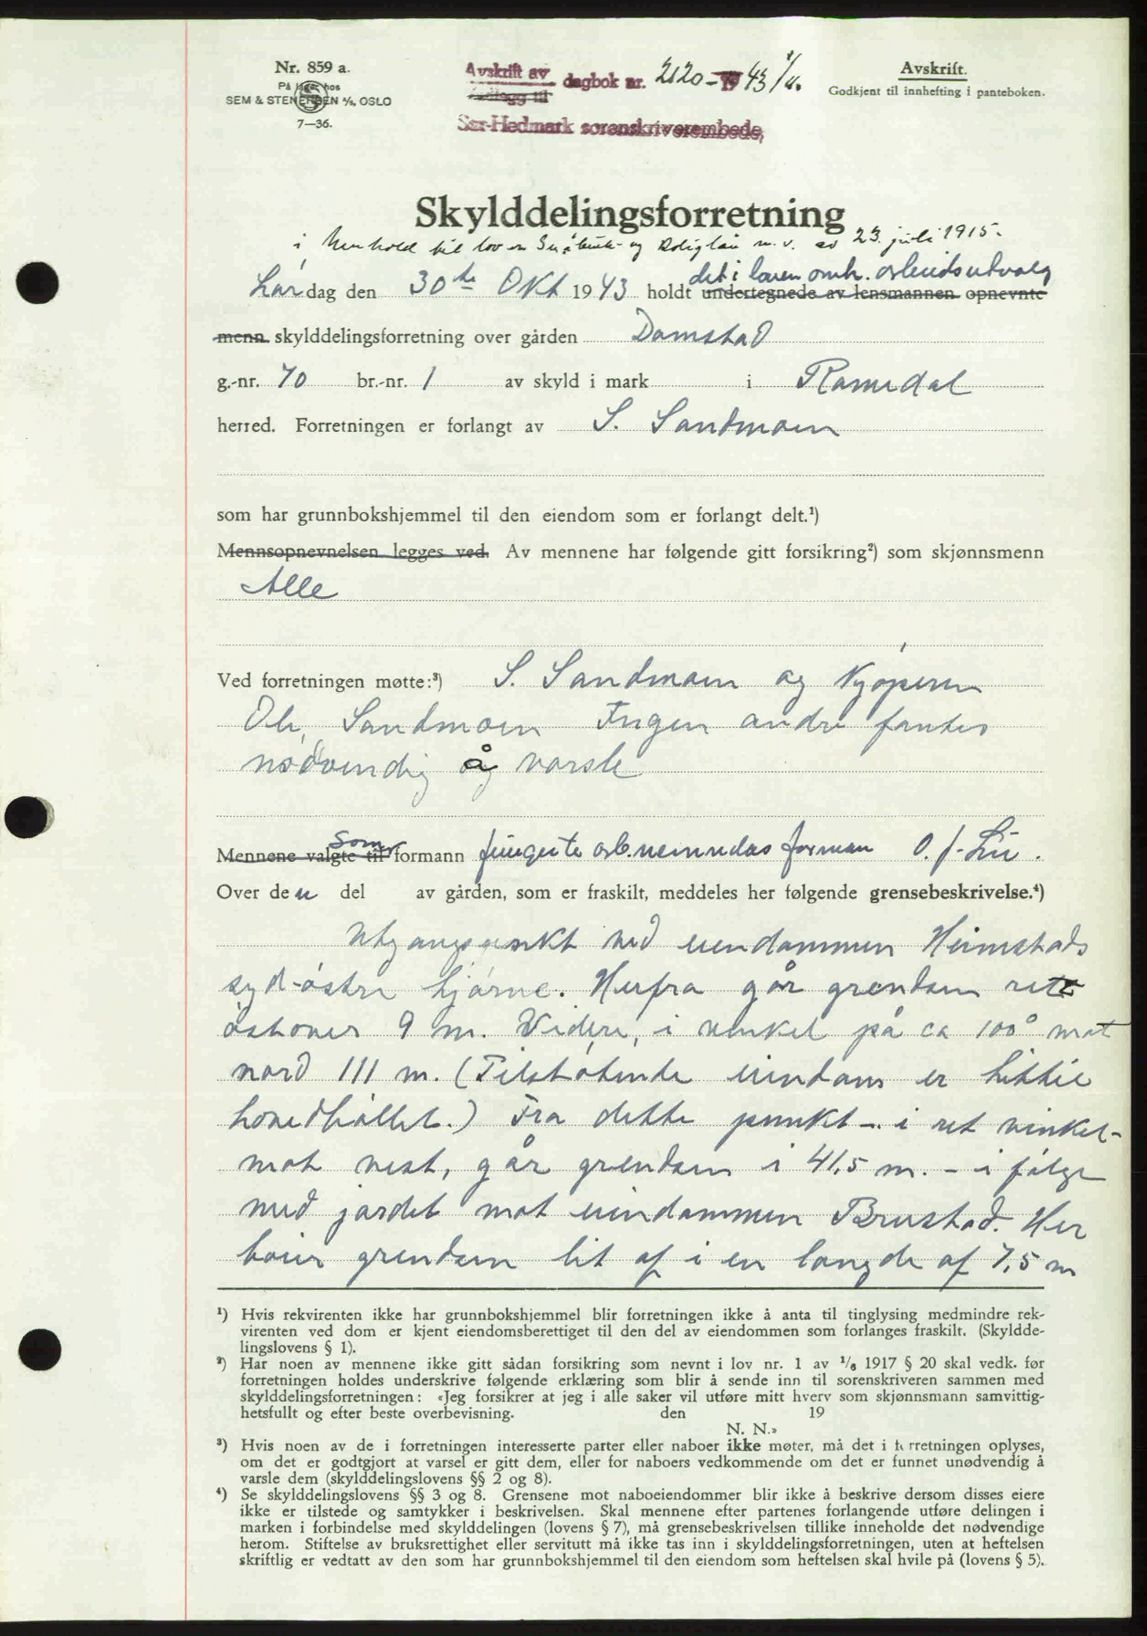 Nr. 859 a.
På lager hos
SEM & STENERSEN A/S. OSLO
7—36.
Avskrift av dagbok nr. 2120 - 1943 1/11.
Vedlegg til
Sør-Hedmark sorenskriverembede,
Avskrift.
Godkjent til innhefting i panteboken.
Skylddelingsforretning
i henhold til lov om Småbruk- og Boliglån m.v. av 23. juli 1915.
det i loven omh. arbeidsutvalg
Lørdag den 30te Okt 1943 holdt undertegnede av lensmannen opnevnte
menn skylddelingsforretning over gården Damstad
g.-nr. 70 br.-nr. 1 av skyld i mark i Romedal
herred. Forretningen er forlangt av S. Sandmoen
som har grunnbokshjemmel til den eiendom som er forlangt delt.¹)
Mennsopnevnelsen legges ved. Av mennene har følgende gitt forsikring²) som skjønnsmenn
Alle
Ved forretningen møtte:³) S. Sandmoen og Kjøperen
Ole Sandmoen Ingen andre fantes
nødvendig å varsle
Som
Mennene valgte til formann fungerte arb.nemndas forman O. J. Lie.
Over den del av gården, som er fraskilt, meddeles her følgende grensebeskrivelse.⁴)
Utgangspunkt ved eiendommen Heimstads
syd-østre hjørne. Herfra går grensen rett
østover 9 m. Videre, i vinkel på ca 100° mot
nord 111 m. (Tilstøtende eiendom er hittil
hovedbøllet.) Fra dette punkt - i ret vinkel -
mot vest, går grensen i 41,5 m. - i følge
med jordet mot eiendommen Brustad. Her
bøier grensen lit af i en længde af 7,5 m
¹) Hvis rekvirenten ikke har grunnbokshjemmel blir forretningen ikke å anta til tinglysing medmindre rek-
virenten ved dom er kjent eiendomsberettiget til den del av eiendommen som forlanges fraskilt. (Skyldde-
lingslovens § 1).
²) Har noen av mennene ikke gitt sådan forsikring som nevnt i lov nr. 1 av 1/6 1917 § 20 skal vedk. før
forretningen holdes underskrive følgende erklæring som blir å sende inn til sorenskriveren sammen med
skylddelingsforretningen: «Jeg forsikrer at jeg i alle saker vil utføre mitt hverv som skjønnsmann samvittig-
hetsfullt og efter beste overbevisning. den 19
N. N.»
³) Hvis noen av de i forretningen interesserte parter eller naboer ikke møter, må det i forretningen oplyses,
om det er godtgjort at varsel er gitt dem, eller for naboers vedkommende om det er funnet unødvendig å
varsle dem (skylddelingslovens §§ 2 og 8).
⁴) Se skylddelingslovens §§ 3 og 8. Grensene mot naboeiendommer blir ikke å beskrive dersom disses eiere
ikke er tilstede og samtykker i beskrivelsen. Skal mennene efter partenes forlangende utføre delingen i
marken i forbindelse med skylddelingen (lovens § 7), må grensebeskrivelsen tillike inneholde det nødvendige
herom. Stiftelse av bruksrettighet eller servitutt må ikke tas inn i skylddelingsforretningen, uten at heftelsen
skriftlig er vedtatt av den som har grunnbokshjemmel til den eiendom som heftelsen skal hvile på (lovens § 5).